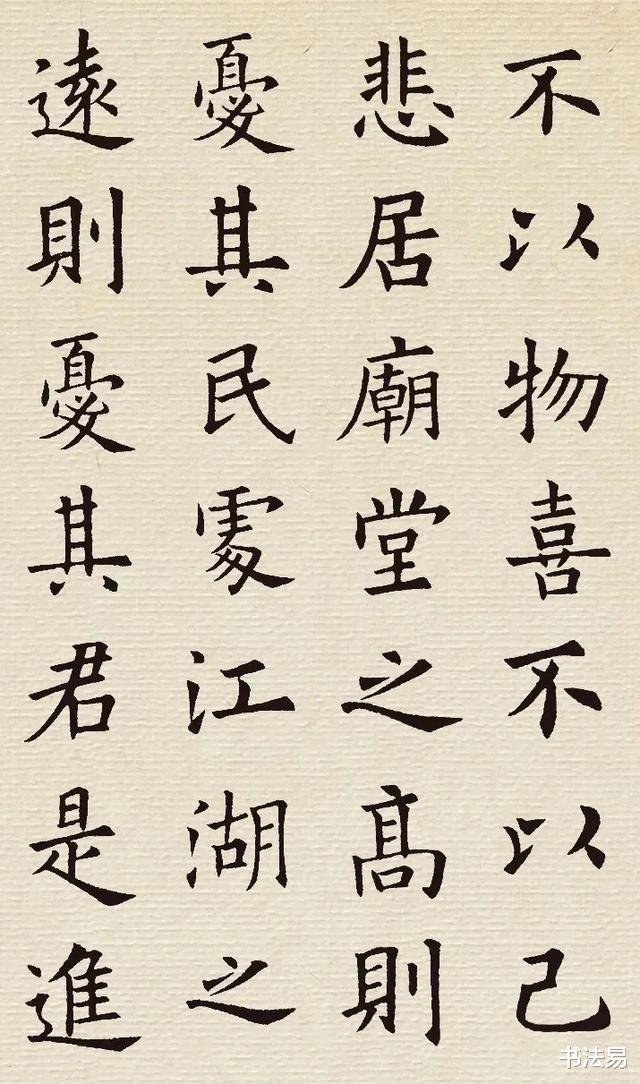 不以物喜不以己
悲居廟堂之高則
憂其民處江湖之
遠則憂其君是進
书法易